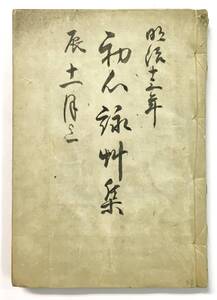 明治十三年
初心詠草集
辰十一月